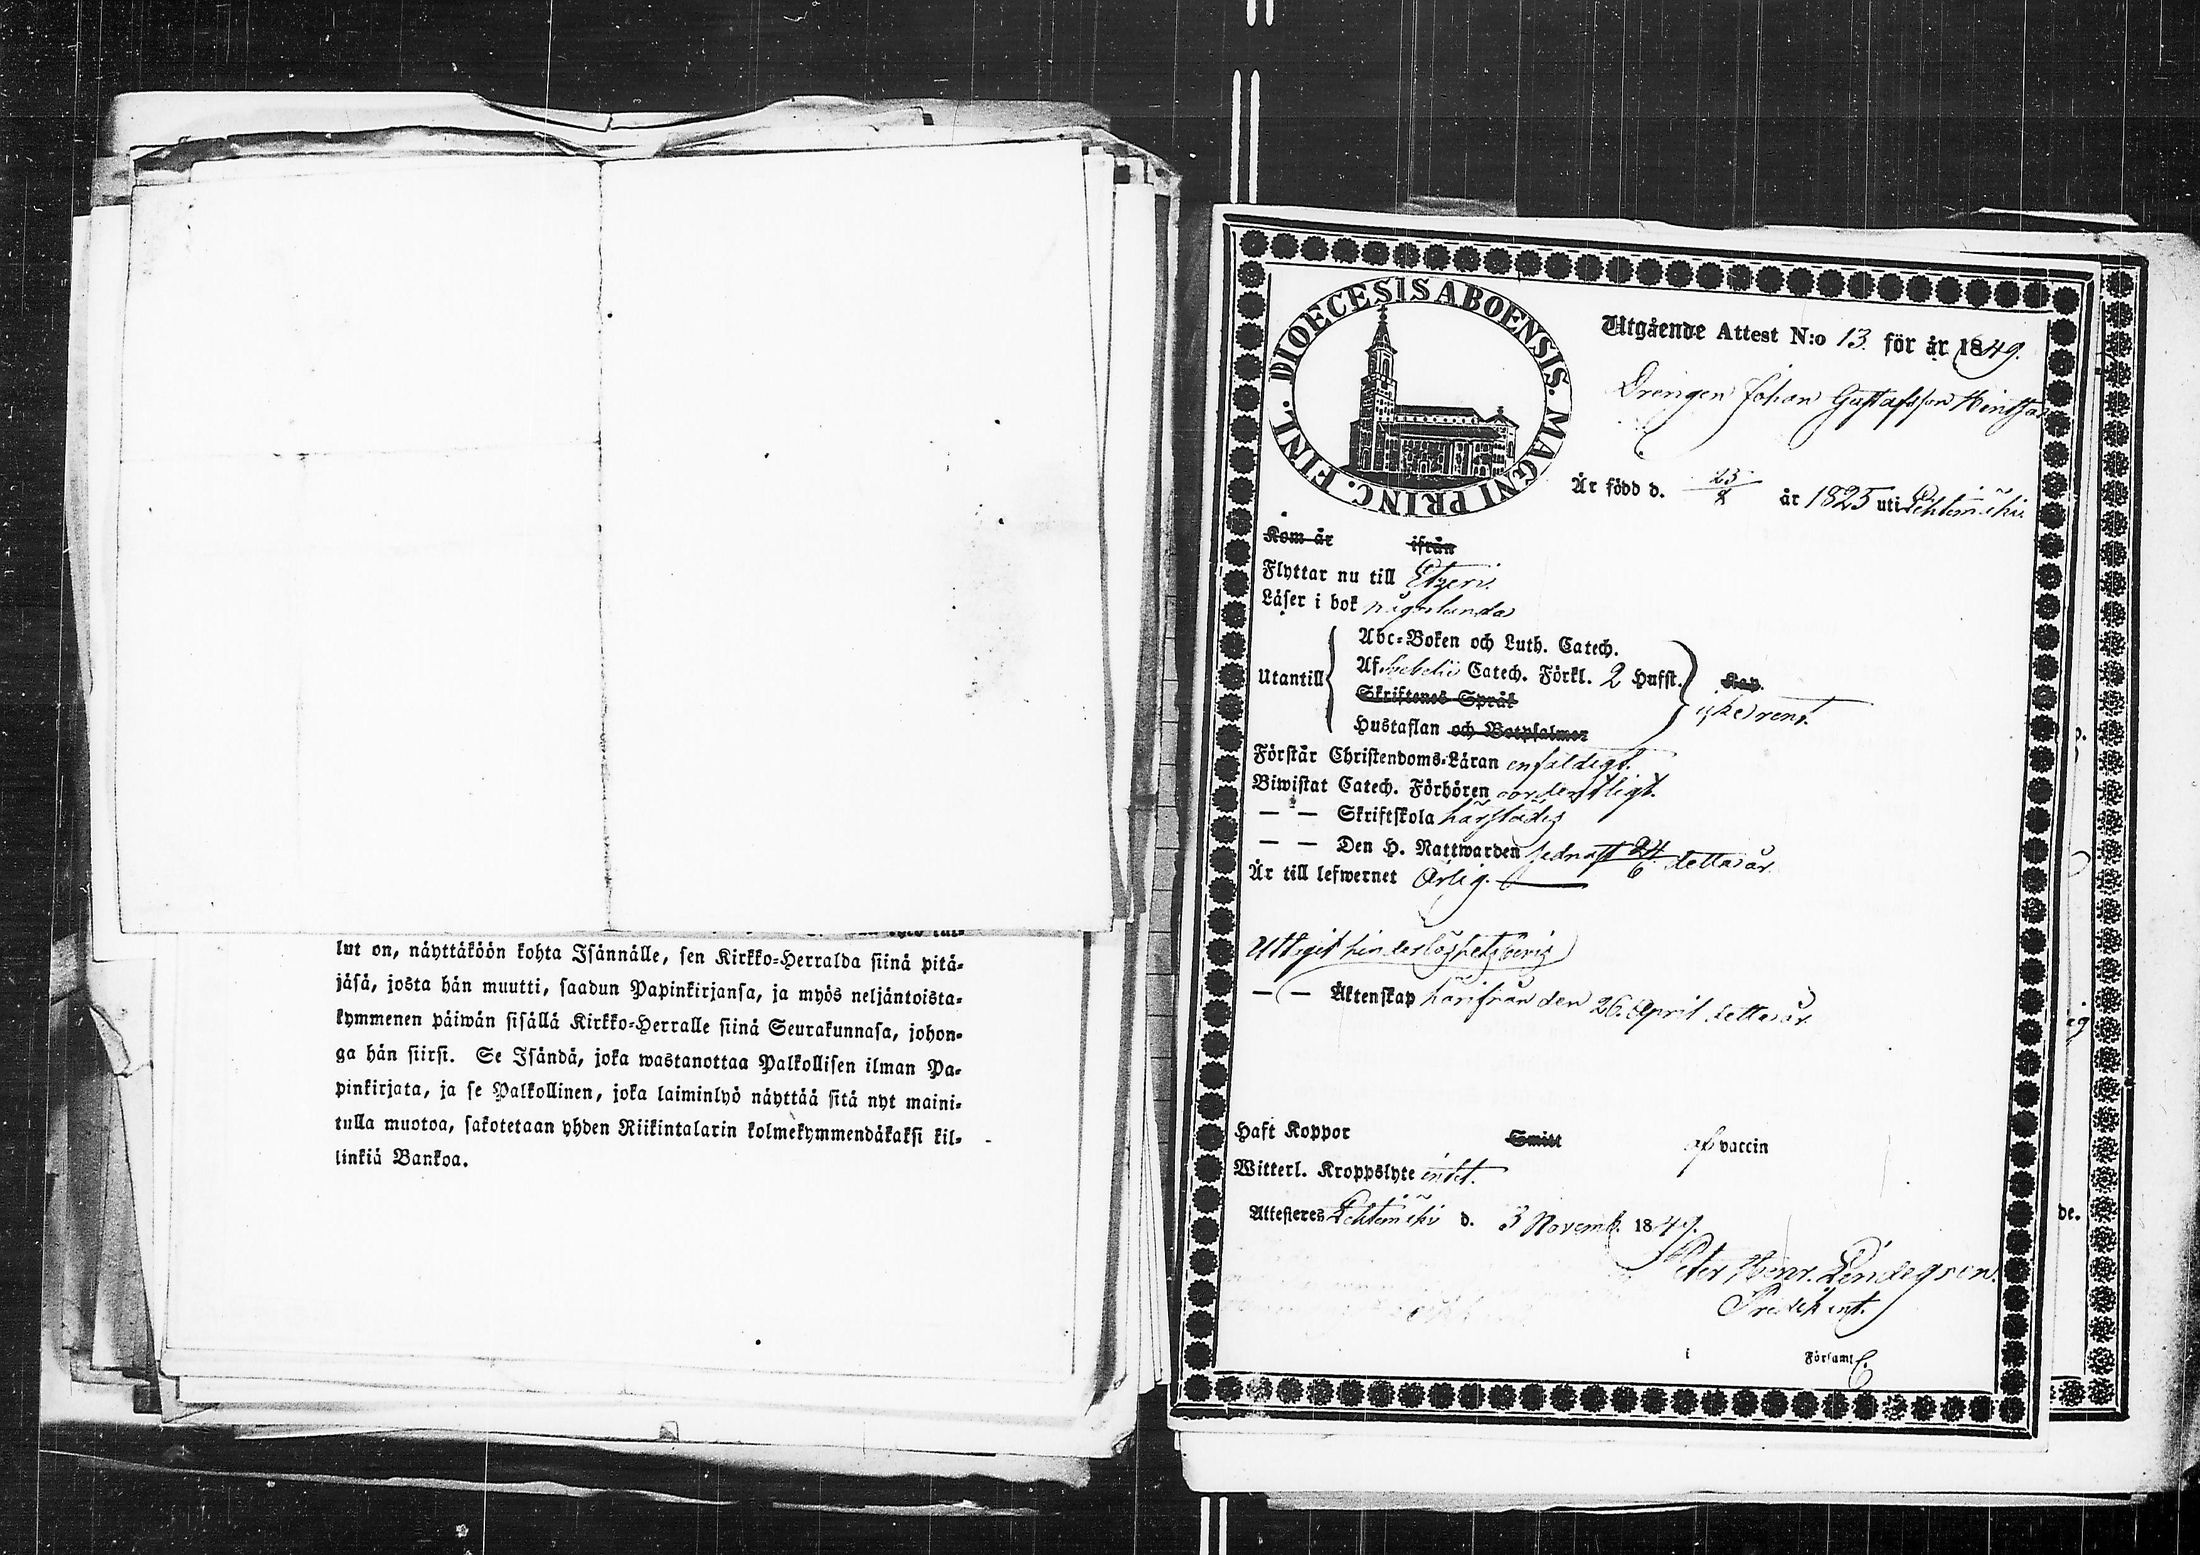 lut on, näyttäköön kohta Isännälle, sen Kirkko-Herralda siinä pitä-
jäsä, josta hän muutti, saadun Papinkirjansa, ja myös neljäntoista-
kymmenen päiwän sisällä Kirkko-Herralle siinä Seurakunnasa, johon-
ga hän siirsi. Se Isändä, joka wastanottaa Palkollisen ilman Pa-
pinkirjata, ja se Palkollinen, joka laiminlyö näyttää sitä nyt maini-
tulla muotoa, sakotetaan yhden Riikintalarin kolmekymmendäkaksi kil-
linkiä Bankoa.
DIOECESIS ABOENSIS. MAGNI PRINC. FINL.
Utgående Attest N:o 13. för år 1849.
Drengen Johan Gustafsson
Är född d. 23/8 år 1825 uti Pihtimäki
Kom år ifrån
Flyttar nu till Etzeri.
Läser i bok någorlunda
Abc-Boken och Luth. Catech.
Utantill Af Svebelii Catech. Förkl. 2 Hufst. Kap.
Skriftenes Språk
Hustaflan och Botpsalmer
Förstår Christendoms-Läran enfaldigt.
Biwistat Catech. Förhören ordentligt.
— — Skriftskola härstädes
— — Den H. Nattwarden sednast 24/6 detta år.
Är till lefwernet Ärlig.
Uttagit hinderlöshetsbevis
— — Äktenskap härifrån den 26. April detta år.
Haft Koppor Smitt af vaccin
Witterl. Kroppslyte intet.
Attesteres Pihtimäki d. 3 Novemb. 1849.
Peter Henr. Lindegren.
Predikant.
i Församl.